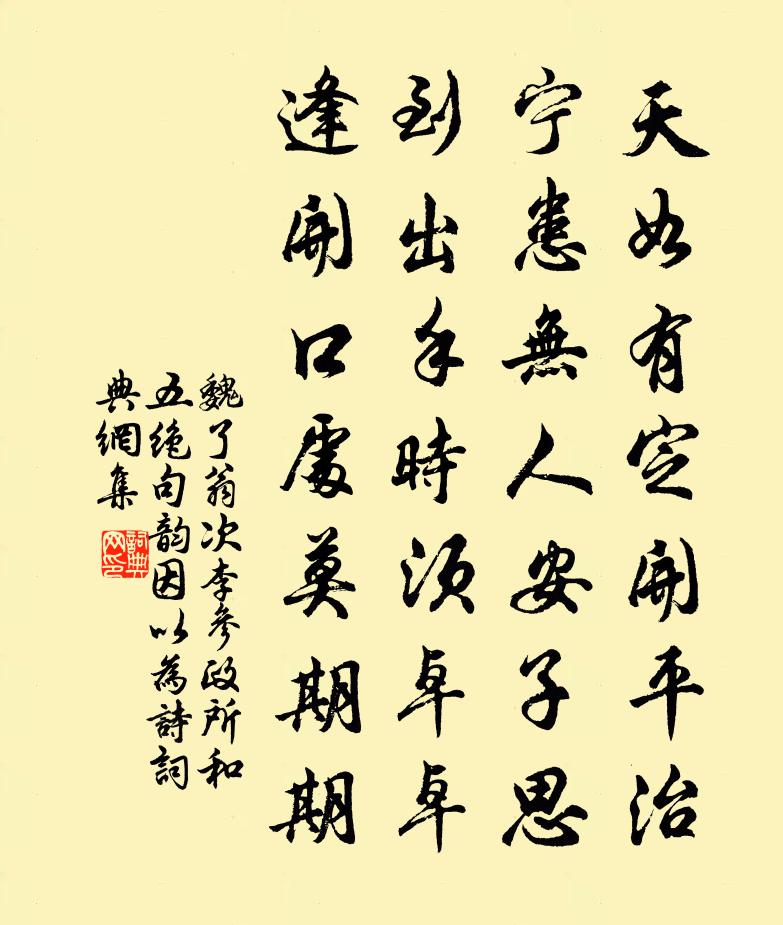 天如有定開平治
宁患無人安子思
到出手時須卓卓
逢開口處莫期期
魏了翁次李參政所和
五絶句韵因以為詩詞
典網集
詞典
网印